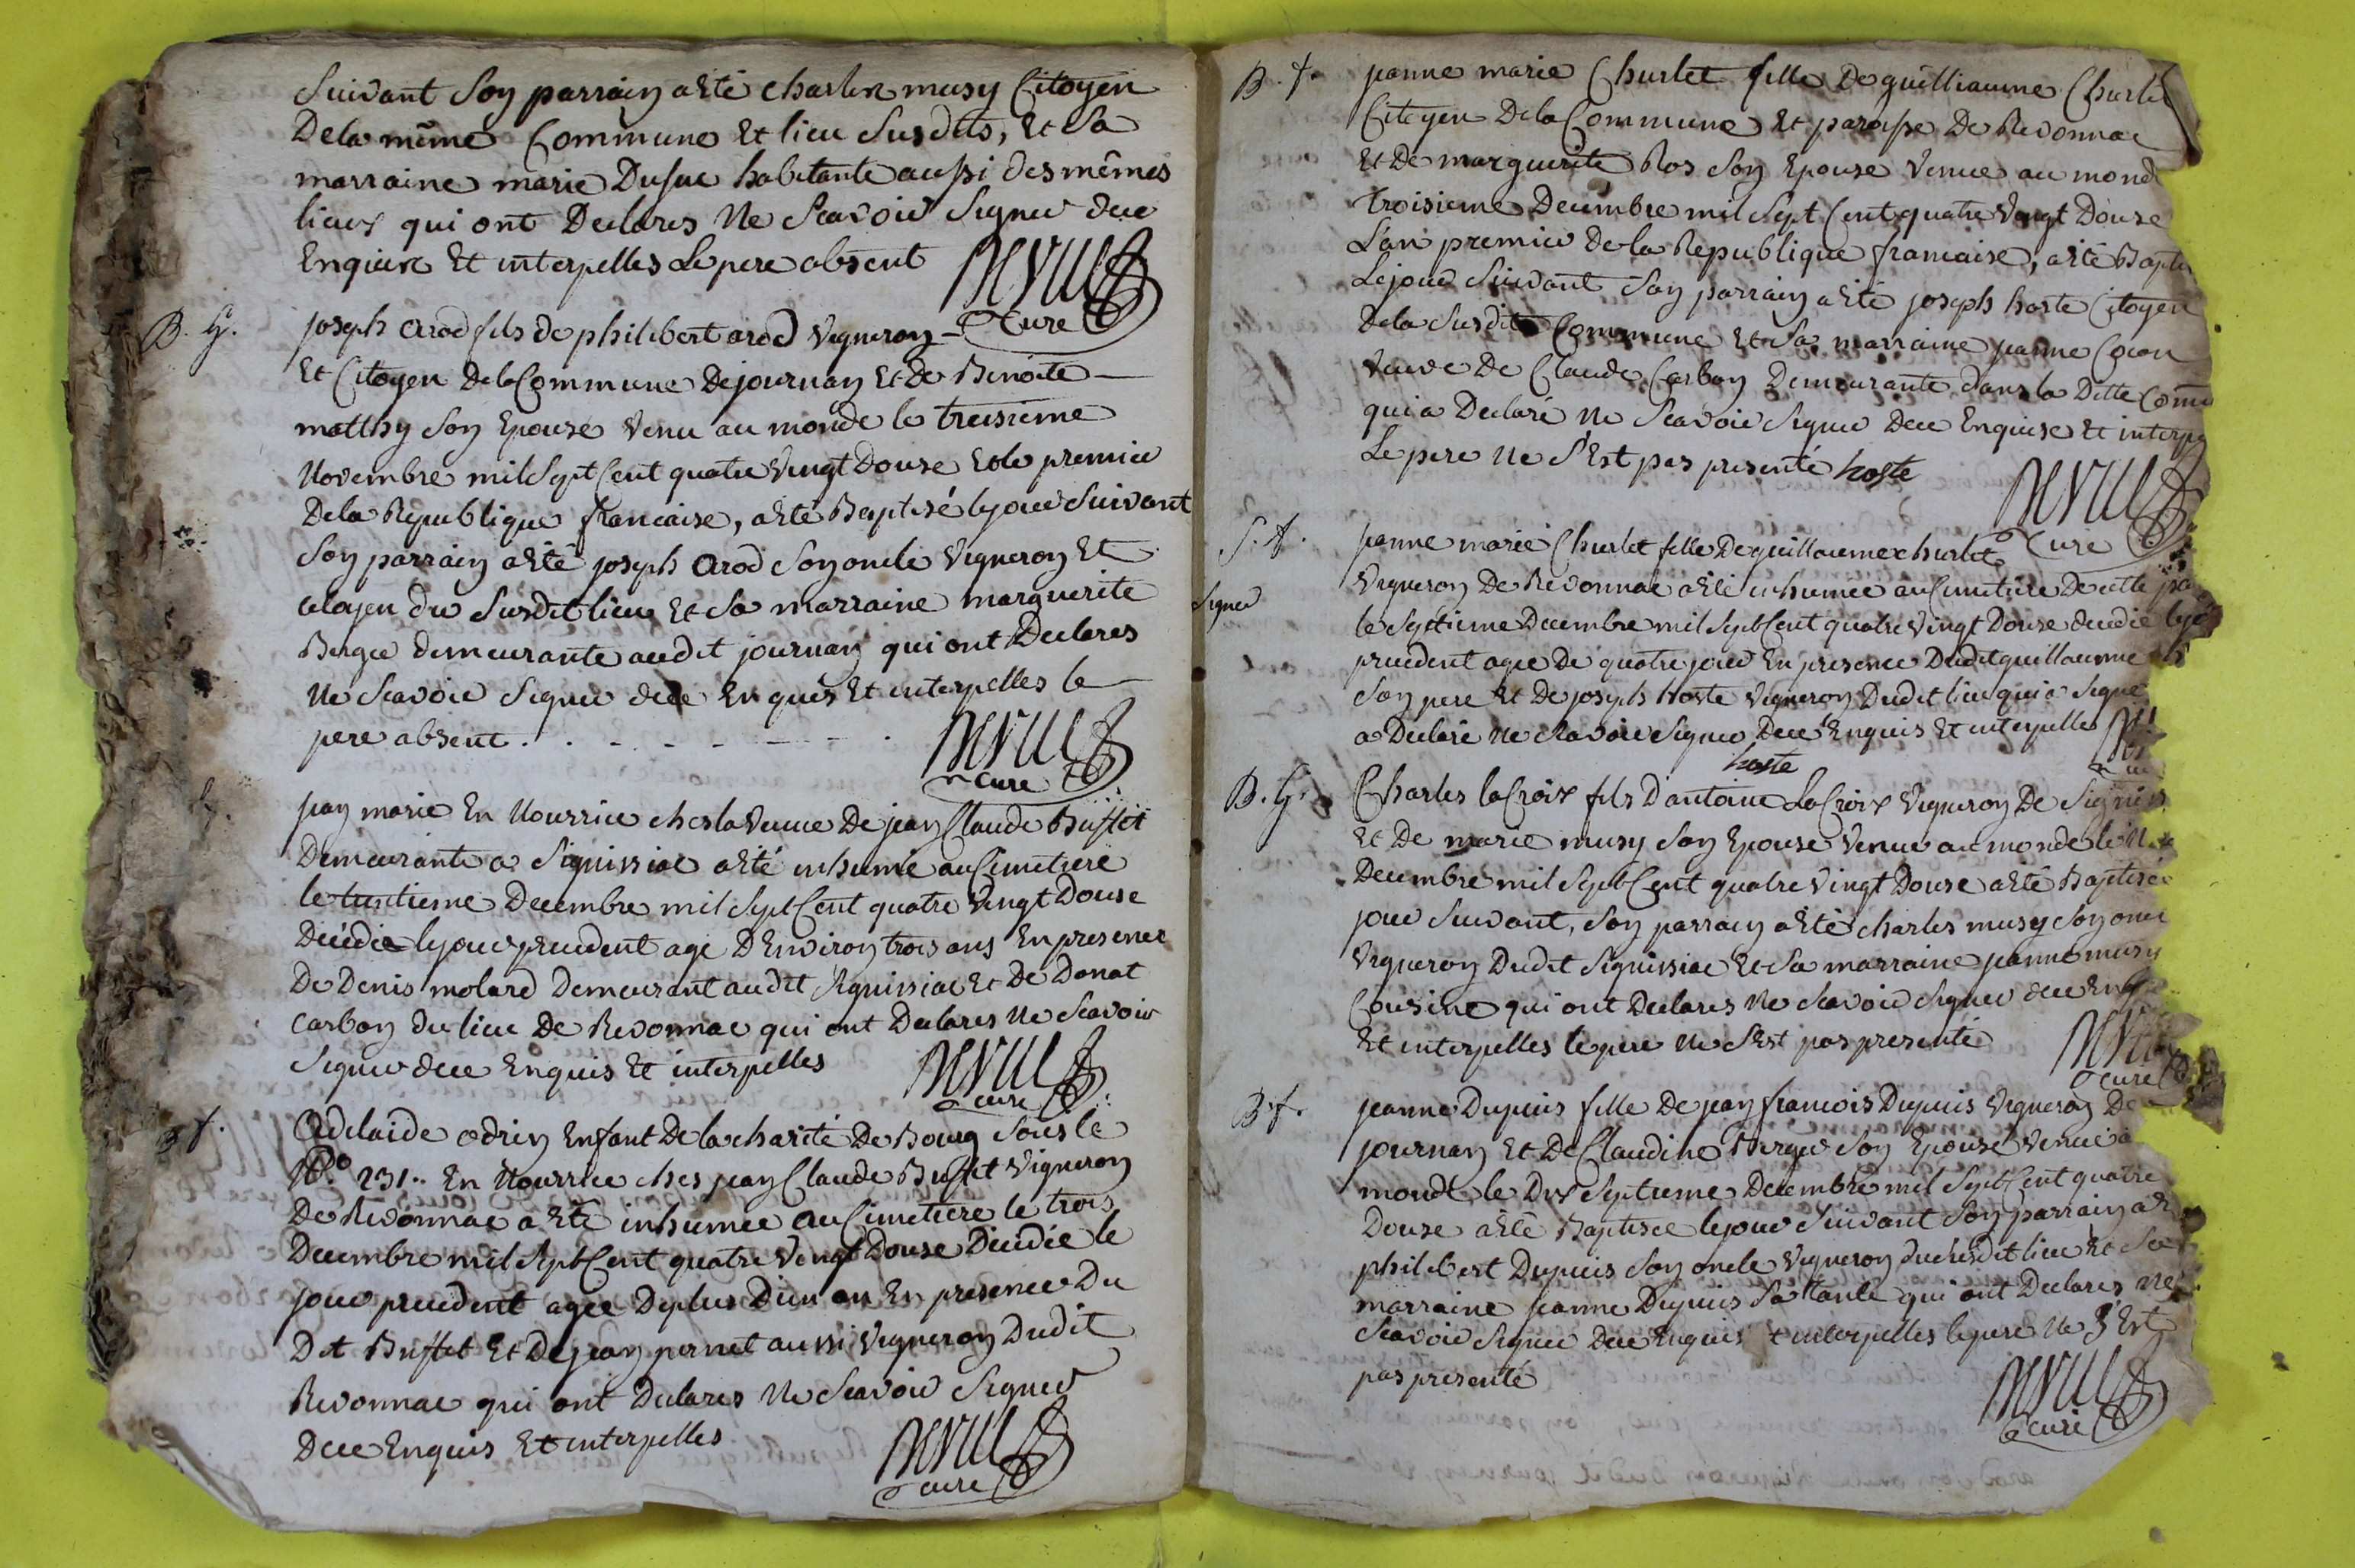 Suivant Son parrain a Eté charles musy Citoyen
De la même Commune Et lieu Susdits, Et Sa
marraine marie Dufuc habitante aussi des mêmes
lieux qui ont Declares Ne Scavoir Signer dece
Enquire Et interpelles Le pere absent
Cure
B. G. joseph arod fils de philibert arod Vigneron
Et Citoyen De la Commune De journan Et de Benoite
matthy Son Epouse Venu au monde le treisieme
Novembre mil Sept Cent quatre Vingt Douse Et le premier
De la Republique francaise, a Eté Baptisé le jour Suivant
Son parrain a Eté joseph arod Son oncle Vigneron Et
citoyen du Susdit lieu Et Sa marraine marguerite
Berger demeurante audit journan qui ont Declares
Ne Scavoir Signer dece Enquis Et interpelles le
pere absent
Cure
jean marie En Nourrice ches la Veuve De jean Claude Buffet
Demeurante a Signissiac a Eté inhumé au Cimetiere
le Decembre mil Sept Cent quatre Vingt Douse
Decédie le jour precedent age D'Environ trois ans En presence
De Denis molard Demeurant audit Signissiac Et De Donat
Carbon du lieu De Revonnac qui ont Declares Ne Scavoir
Signer dece Enquis Et interpelles
cure
f. Adelaide odrin Enfant De la charité De Bourg Sous le
N.o 231.. En Nourrice ches jean Claude Buffet Vigneron
De Revonnac a Eté inhumee au Cimetiere le trois
Decembre mil Sept Cent quatre Vingt Douse Decédie le
jour precedent agee De plus D'un an En presence Du
Dit Buffet Et De jean pernet aussi Vigneron Dudit
Revonnac qui ont Declares Ne Scavoir Signer
Dece Enquis Et interpelles
cure
B. f. janne marie Churlet fille De guilliaume Churlet
Citoyen De la Commune Et paroisse De Revonnac
Et De marguerite Ros Son Epouse Venue au mond
troisieme Decembre mil Sept Cent quatre Vingt Douse
L'an premier De la Republique francaise, a Eté Bapti
Le jour Suivant Son parrain a Eté joseph hoste Citoyen
De la Susdite Commune Et Sa marraine janne Cocon
Veuve De Claude Carbon Demeurante dans la Ditte Comu
qui a Declaré Ne Scavoir Signer Dece Enquise Et interpe
Le pere Ne S'Est pas presenté hoste
Cure
S. f. janne marie Churlet fille De guillaume churlet
Signer Vigneron De Revonnac a Eté inhumée au Cimetiere De cette pa
le Septieme Decembre mil Sept Cent quatre Vingt Douse decedie le jo
precedent agee De quatre jour En presence Dudit guillaume
Son pere Et De joseph Hoste Vigneron Dudit lieu qui a Signé
a Declaré Ne Scavoir Signer Dece Enquis Et interpelles
hoste
B. G. Charles la Croix fils D'antoine La Croix Vigneron De
Et De marie musy Son Epouse Venue au monde le
Decembre mil Sept Cent quatre Vingt Douse a Eté Baptisé
jour Suivant, Son parrain a Eté charles musy Son oncl
Vigneron Dudit Signissiac Et Sa marraine janne musy
Cousine qui ont Declares Ne Scavoir Signer dece
Et interpelles le pere Ne S'Est pas presenté
cure
B. f. jeanne Dupuis fille De jean francois Dupuis Vigneron De
journan Et De Claudine Berger Son Epouse Venue a
monde le Dix Septieme Decembre mil Sept Cent quatre
Douse a Eté Baptisee le jour Suivant Son parrain a E
philibert Dupuis Son oncle Vigneron du Susdit lieu Et Sa
marraine janne Dupuis Sa tante qui ont Declares Ne
Scavoir Signer Dece Enquis Et interpelles le pere Ne S'Est
pas presenté
cure